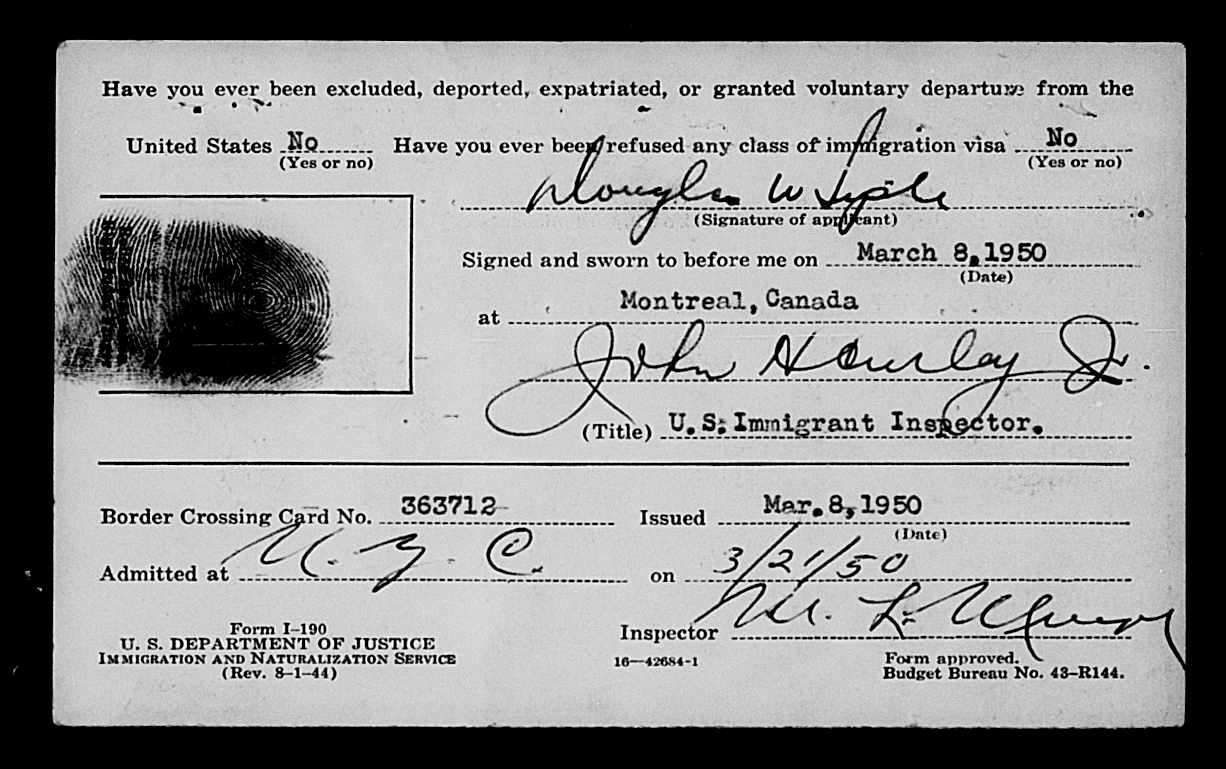 Have you ever been excluded, deported, expatriated, or granted voluntary departure from the
United States No Have you ever been refused any class of immigration visa No
(Yes or no) (Yes or no)
Douglas W
(Signature of applicant)
Signed and sworn to before me on March 8, 1950
(Date)
at Montreal, Canada
John Hourley Jr.
(Title) U. S. Immigrant Inspector.
Border Crossing Card No. 363712 Issued Mar. 8, 1950
(Date)
Admitted at N. Y. C. on 3/21/50
Inspector M. L.
Form I-190
U. S. DEPARTMENT OF JUSTICE
IMMIGRATION AND NATURALIZATION SERVICE
(Rev. 8-1-44)
16—42684-1
Form approved.
Budget Bureau No. 43-R144.